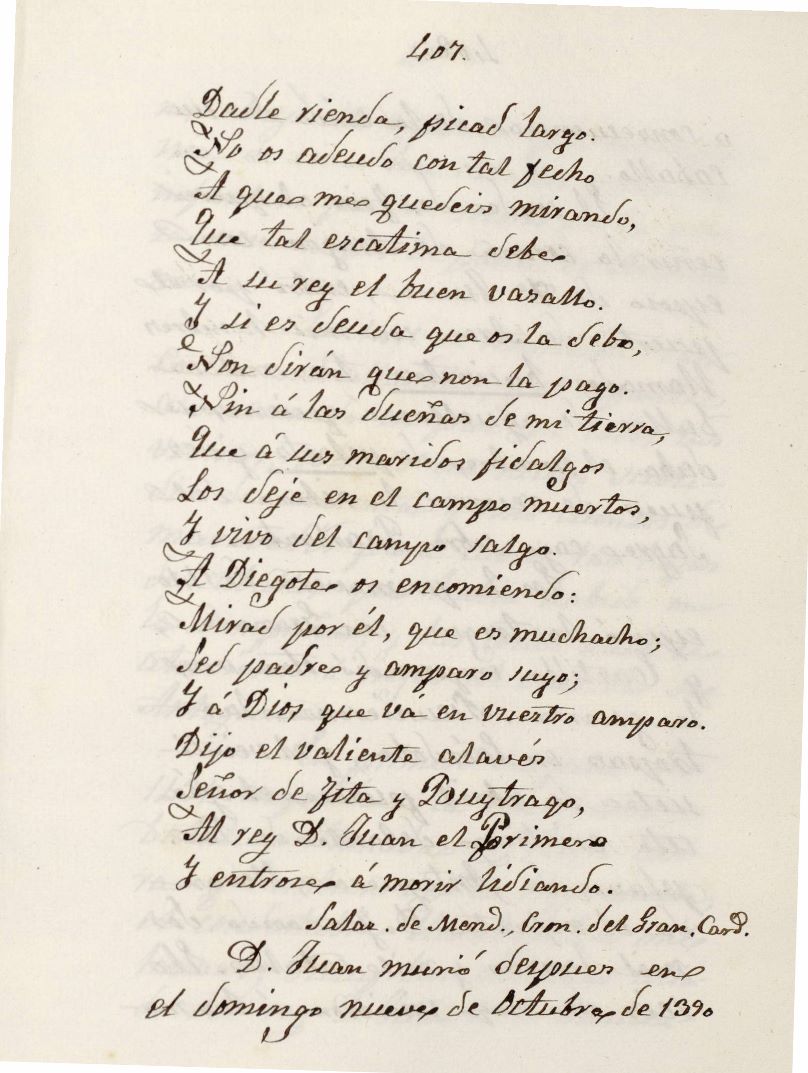 407.
Dadle rienda, picad largo.
No os adeudo con tal fecho
A que me quedeis mirando,
Que tal escatima debe
A su rey el buen vasallo.
Y si es deuda que os la debo,
Non dirán que non la pago.
Nin á las dueñas de mi tierra,
Que á sus maridos fidalgos
Los deje en el campo muertos,
Y vivo del campo salgo.
A Diegote os encomiendo:
Mirad por él, que es muchacho;
Sed padre y amparo suyo;
Y á Dios que vá en vuestro amparo.
Dijo el valiente alavés
Señor de Fita y Buytrago,
Al rey D. Juan el Primero
Y entrose á morir lidiando.
Salaz. de Mend., Cron. del Gran. Card.
D. Juan murió despues en
el domingo nueve de Octubre de 1390